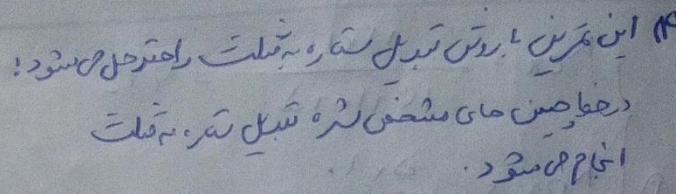 ۱۴) این تمرین با روش تبدیل ستاره به مثلث راحتتر حل می شود!
در خط چین های مشخص شده تبدیل ستاره به مثلث
انجام می شود.